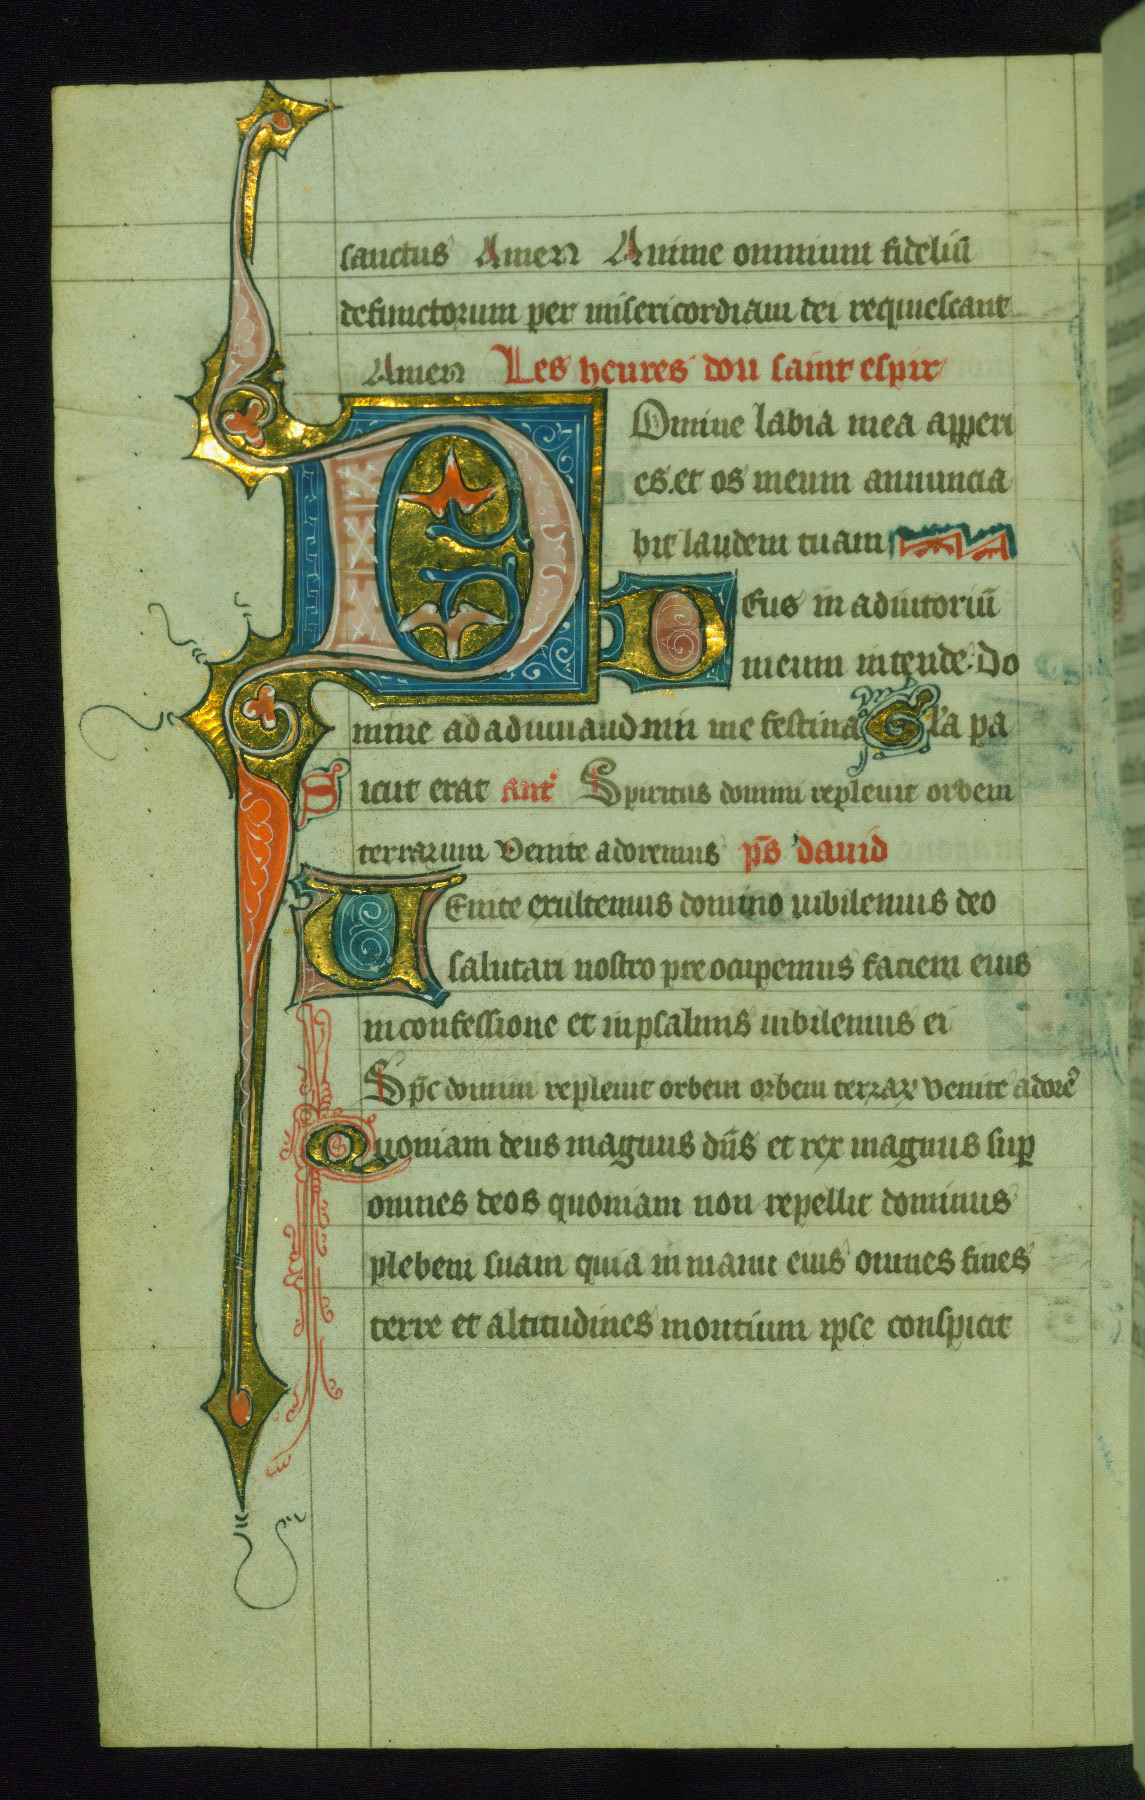 sanctus Amen Anime omnium fideliū
defunctorum per misericordiam dei requiescant
Amen Les heures dou saint espir
Domine labia mea apperi
es. et os meum annuncia
bit laudem tuam
Deus in adiutoriū
meum intende. Do
mine ad adiuuandum me festina Gl'a pa
Sicut erat ant' Spiritus domini repleuit orbem
terrarum venite adoremus ps̄ dauid
Uenite exultemus domino iubilemus deo
salutari nostro pre ocupemus faciem eius
in confessione et in psalmis iubilemus ei
Sp̄c domini repleuit orbem orbem terrar venite adorē
Quoniam deus magnus dn̄s et rex magnus sup
omnes deos quoniam non repellit dominus
plebem suam quia in manu eius omnes fines
terre et altitudines montium ipse conspicit